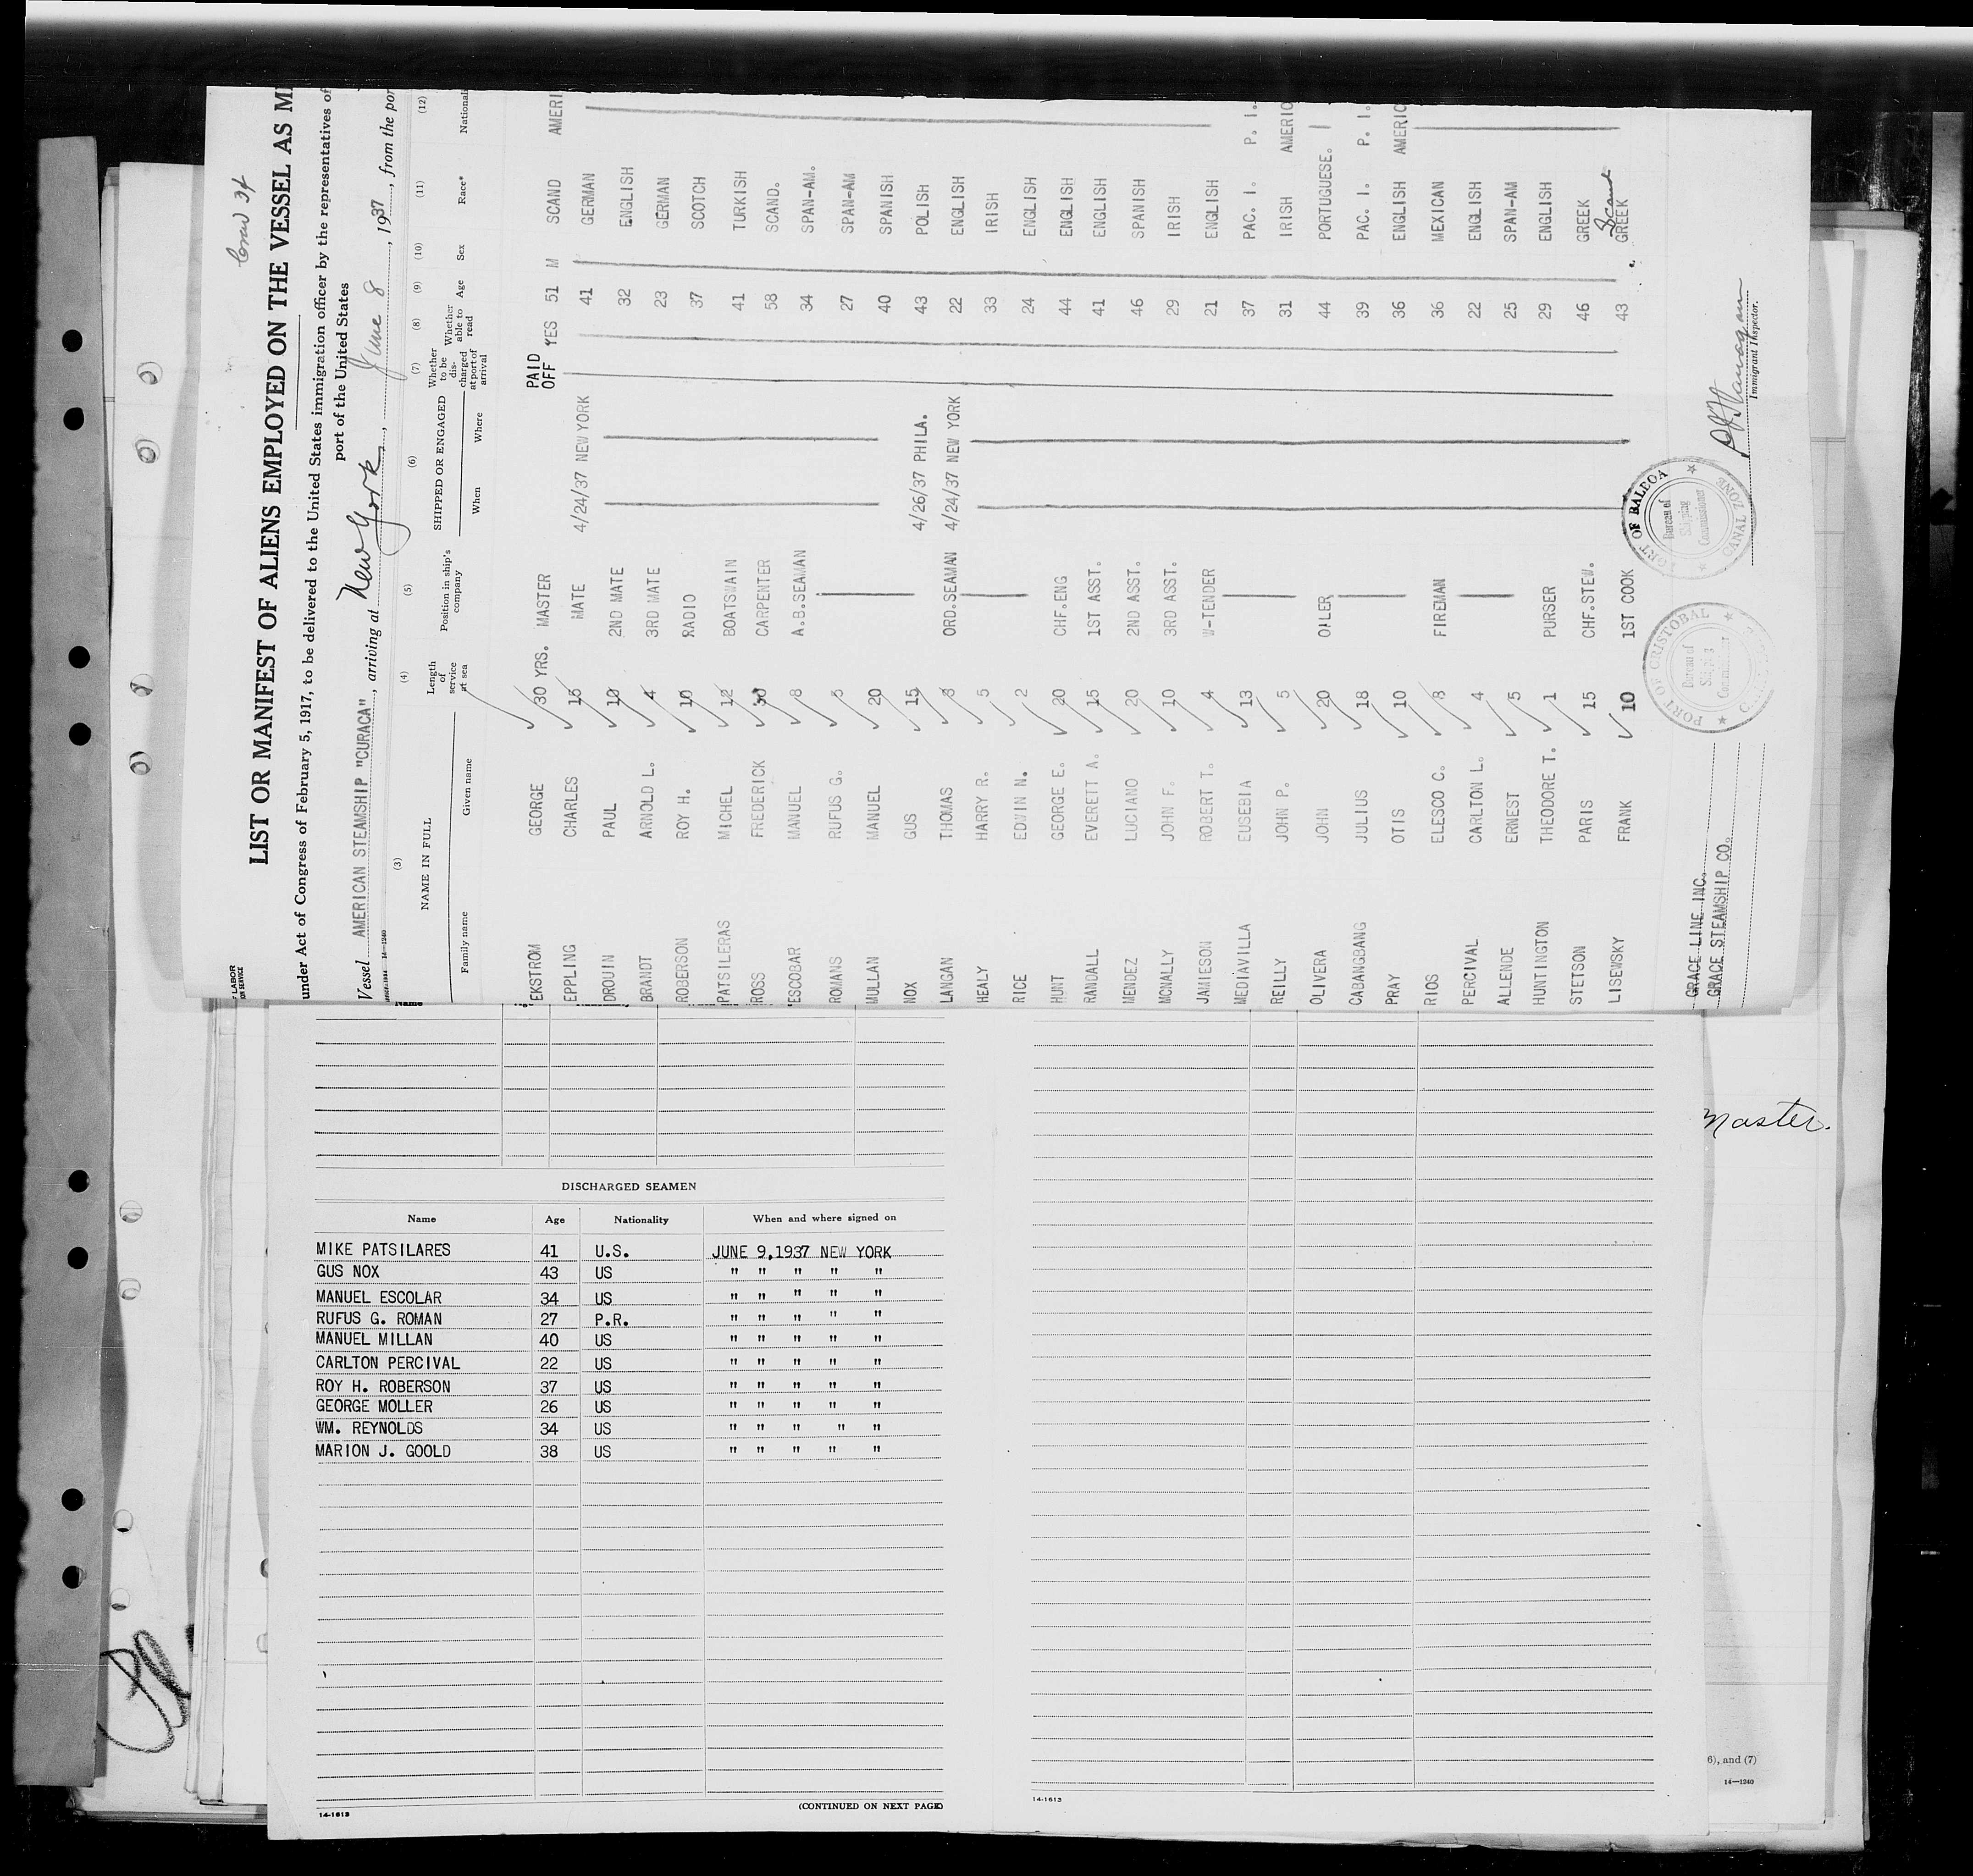 Crew 34
LIST OR MANIFEST OF ALIENS EMPLOYED ON THE VESSEL AS M
under Act of Congress of February 5, 1917, to be delivered to the United States immigration officer by the representatives of
port of the United States
Vessel AMERICAN STEAMSHIP "CURACA", arriving at New York, June 8, 1937, from the por
LABOR
ON SERVICE
14-1240
(3) (4) (5) (6) (7) (8) (9) (10) (11) (12)
NAME IN FULL Length of service at sea Position in ship's company SHIPPED OR ENGAGED Whether to be discharged at port of arrival Whether able to read Age Sex Race* Nationali
Family name Given name When Where
EKSTROM GEORGE 30 YRS. MASTER PAID OFF YES 51 M SCAND AMERI
EPPLING CHARLES 15 MATE 4/24/37 NEW YORK 41 GERMAN
DROUIN PAUL 10 2ND MATE 32 ENGLISH
BRANDT ARNOLD L. 4 3RD MATE 23 GERMAN
ROBERSON ROY H. 10 RADIO 37 SCOTCH
PATSILERAS MICHEL 12 BOATSWAIN 41 TURKISH
ROSS FREDERICK 30 CARPENTER 58 SCAND.
ESCOBAR MANUEL 8 A.B.SEAMAN 34 SPAN-AM.
ROMANS RUFUS G. 5 27 SPAN-AM
MULLAN MANUEL 20 40 SPANISH
NOX GUS 15 4/26/37 PHILA. 43 POLISH
LANGAN THOMAS 3 ORD.SEAMAN 4/24/37 NEW YORK 22 ENGLISH
HEALY HARRY R. 5 33 IRISH
RICE EDWIN N. 2 24 ENGLISH
HUNT GEORGE E. 20 CHF.ENG 44 ENGLISH
RANDALL EVERETT A. 15 1ST ASST. 41 ENGLISH
MENDEZ LUCIANO 20 2ND ASST. 46 SPANISH
MCNALLY JOHN F. 10 3RD ASST. 29 IRISH
JAMIESON ROBERT T. 4 W-TENDER 21 ENGLISH
MEDIAVILLA EUSEBIA 13 37 PAC. I. P. I.
REILLY JOHN P. 5 31 IRISH AMERIC
OLIVERA JOHN 20 OILER 44 PORTUGUESE.
CABANGBANG JULIUS 18 39 PAC. I. P. I.
PRAY OTIS 10 36 ENGLISH AMERIC
RIOS ELESCO C. 8 FIREMAN 36 MEXICAN
PERCIVAL CARLTON L. 4 22 ENGLISH
ALLENDE ERNEST 5 25 SPAN-AM
HUNTINGTON THEODORE T. 1 PURSER 29 ENGLISH
STETSON PARIS 15 CHF.STEW. 46 GREEK
LISEWSKY FRANK 10 1ST COOK 43 GREEK Scand
GRACE LINE INC.
GRACE STEAMSHIP CO.
PORT OF CRISTOBAL
Bureau of
Shipping
Commissioner
PORT OF BALBOA
CANAL ZONE
Bureau of
Shipping
Commissioner
Immigrant Inspector.
Master.
DISCHARGED SEAMEN
Name Age Nationality When and where signed on
MIKE PATSILARES 41 U.S. JUNE 9,1937 NEW YORK
GUS NOX 43 US " " " " "
MANUEL ESCOLAR 34 US " " " " "
RUFUS G. ROMAN 27 P.R. " " " " "
MANUEL MILLAN 40 US " " " " "
CARLTON PERCIVAL 22 US " " " " "
ROY H. ROBERSON 37 US " " " " "
GEORGE MOLLER 26 US " " " " "
WM. REYNOLDS 34 US " " " " "
MARION J. GOOLD 38 US " " " " "
14-1613
(CONTINUED ON NEXT PAGE)
14-1613
6), and (7)
14-1240